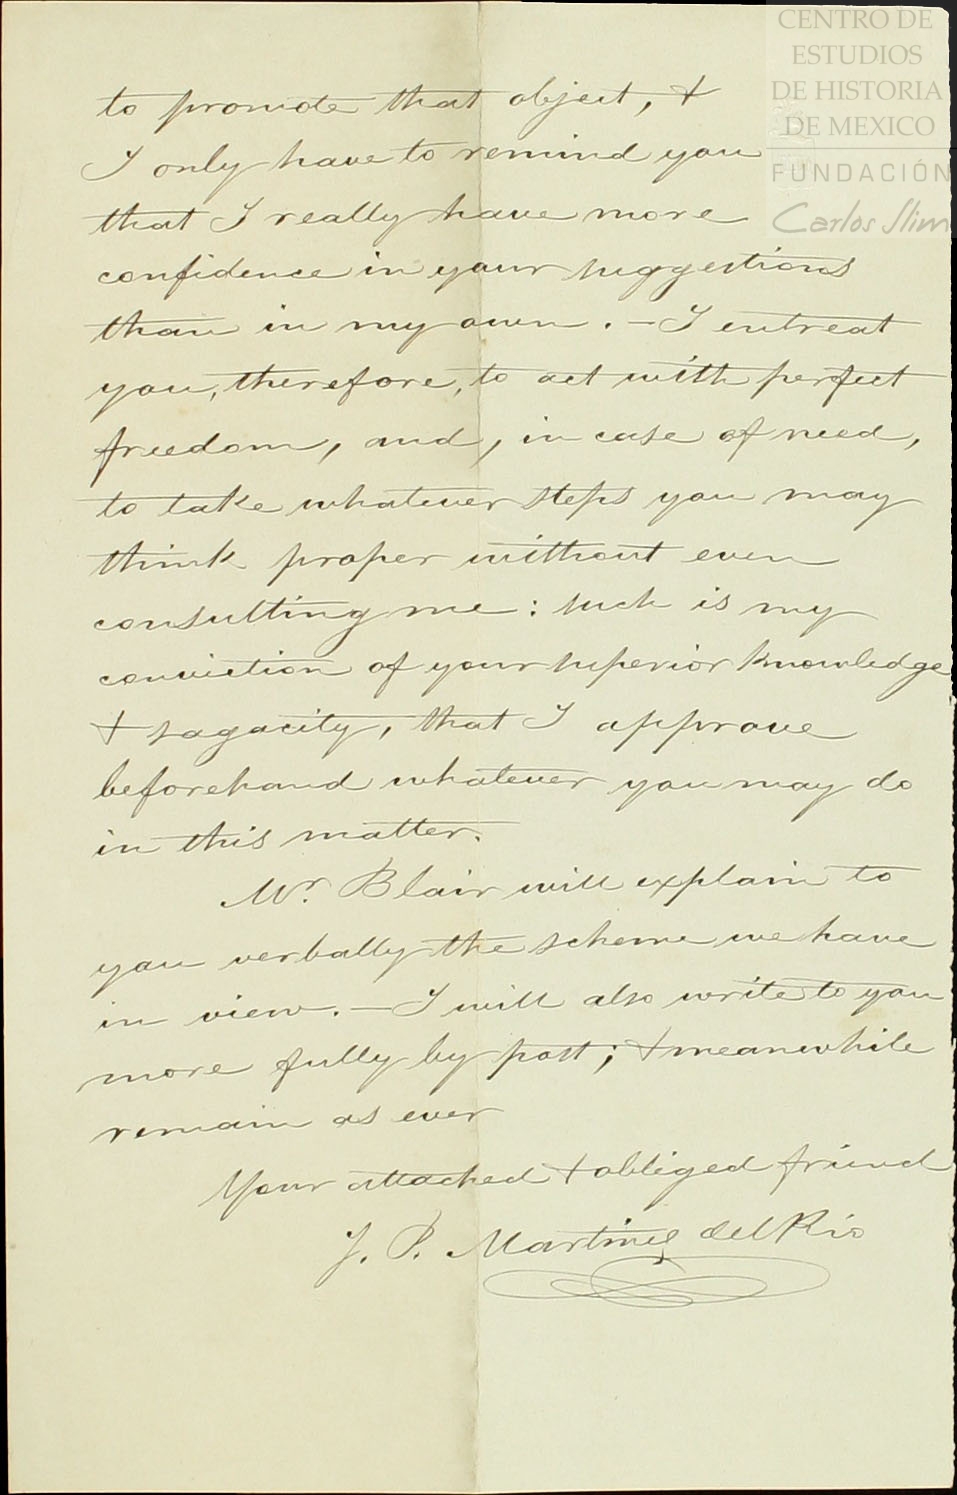 CENTRO DE
ESTUDIOS
DE HISTORIA
DE MEXICO
FUNDACIÓN
Carlos Slim
to promote that object, &
I only have to remind you
that I really have more
confidence in your suggestions
than in my own. — I entreat
you, therefore, to act with perfect
freedom, and, in case of need,
to take whatever steps you may
think proper without even
consulting me: such is my
conviction of your superior knowledge
& sagacity, that I approve
beforehand whatever you may do
in this matter.
Mr. Blair will explain to
you verbally the scheme we have
in view. — I will also write to you
more fully by post; & meanwhile
remain as ever
Your attached & obliged friend
J. P. Martinez del Rio